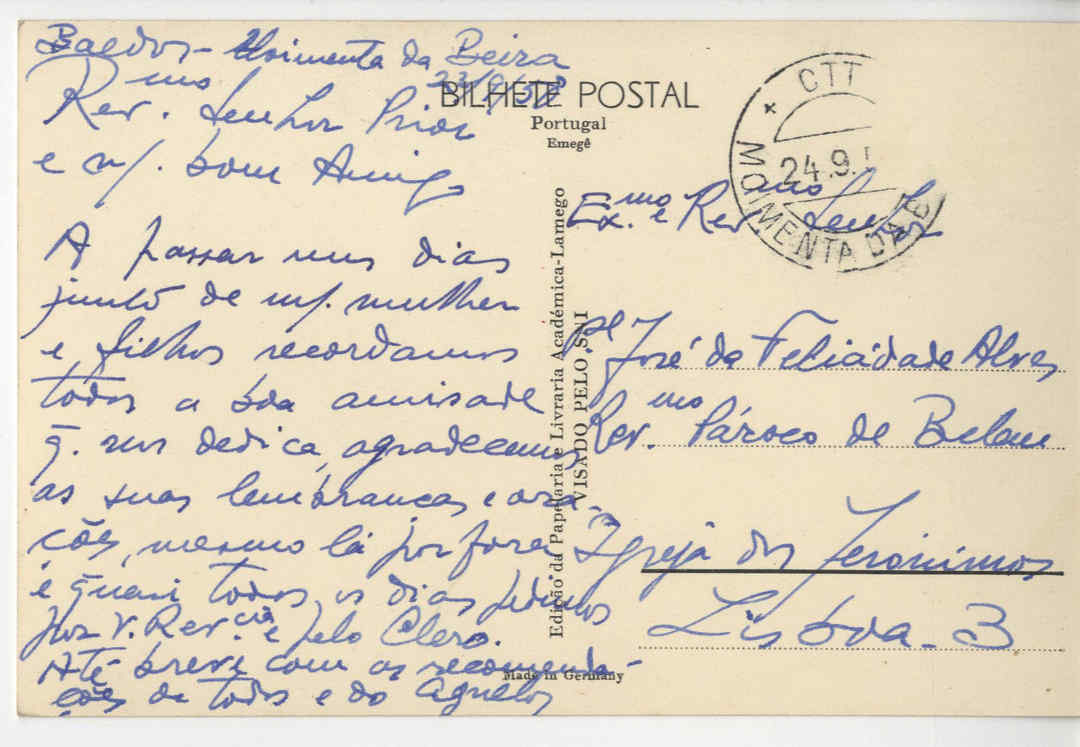 Baldos - Moimenta da Beira
23/9/58
Rev.mo Senhor Prior
e m/. bom Amigo
A passar uns dias
junto de m/. mulher
e filhos recordamos
todos a boa amisade
q. nos dedica, agradecemos
as suas lembranças e ora-
ções, mesmo lá por fora
e quasi todos os dias pedimos
por V. Rev.cia e pelo Clero.
Até breve com as recomenda-
ções de todos e do Agnelos
BILHETE POSTAL
Portugal
Emegê
Edição da Papelaria e Livraria Académica-Lamego
VISADO PELO SNI
Made in Germany
CTT
24.9.
MOIMENTA DA B
Ex.mo e Rev.mo Senhor
P.e José da Felicidade Alves
Rev.mo Pároco de Belem
Igreja dos Jeronimos
Lisboa - 3